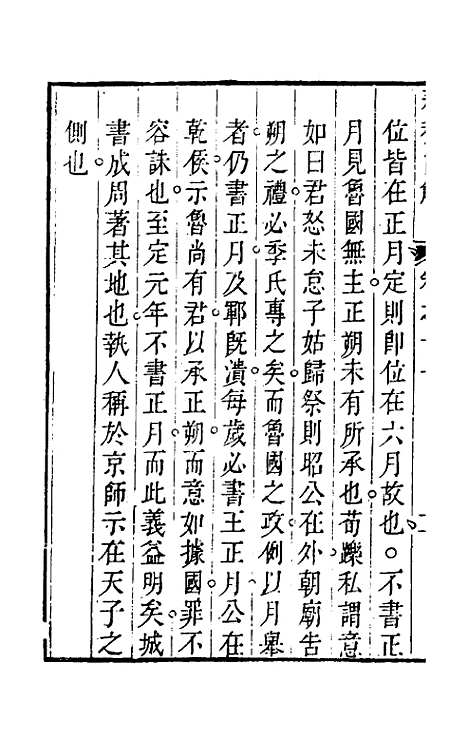 位皆在正月定則即位在六月故也○不書正
月見魯國無主正朔未有所承也荀躒私謂意
如曰君怒未怠子姑歸祭則昭公在外朝廟告
朔之禮必季氏專之矣而魯國之政例以月舉
者仍書正月及鄆旣潰每歲必書王正月公在
乾侯示魯尚有君以承正朔而意如據國罪不
容誅也至定元年不書正月而此義益明矣城
書成周著其地也執人稱於京師示在天子之
側也